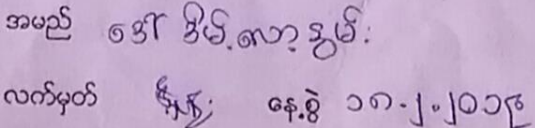 အမည် ဒေါ် ဒိမ့်လော့နွမ်း
လက်မှတ် နေ့စွဲ ၁၈.၂.၂၀၁၉